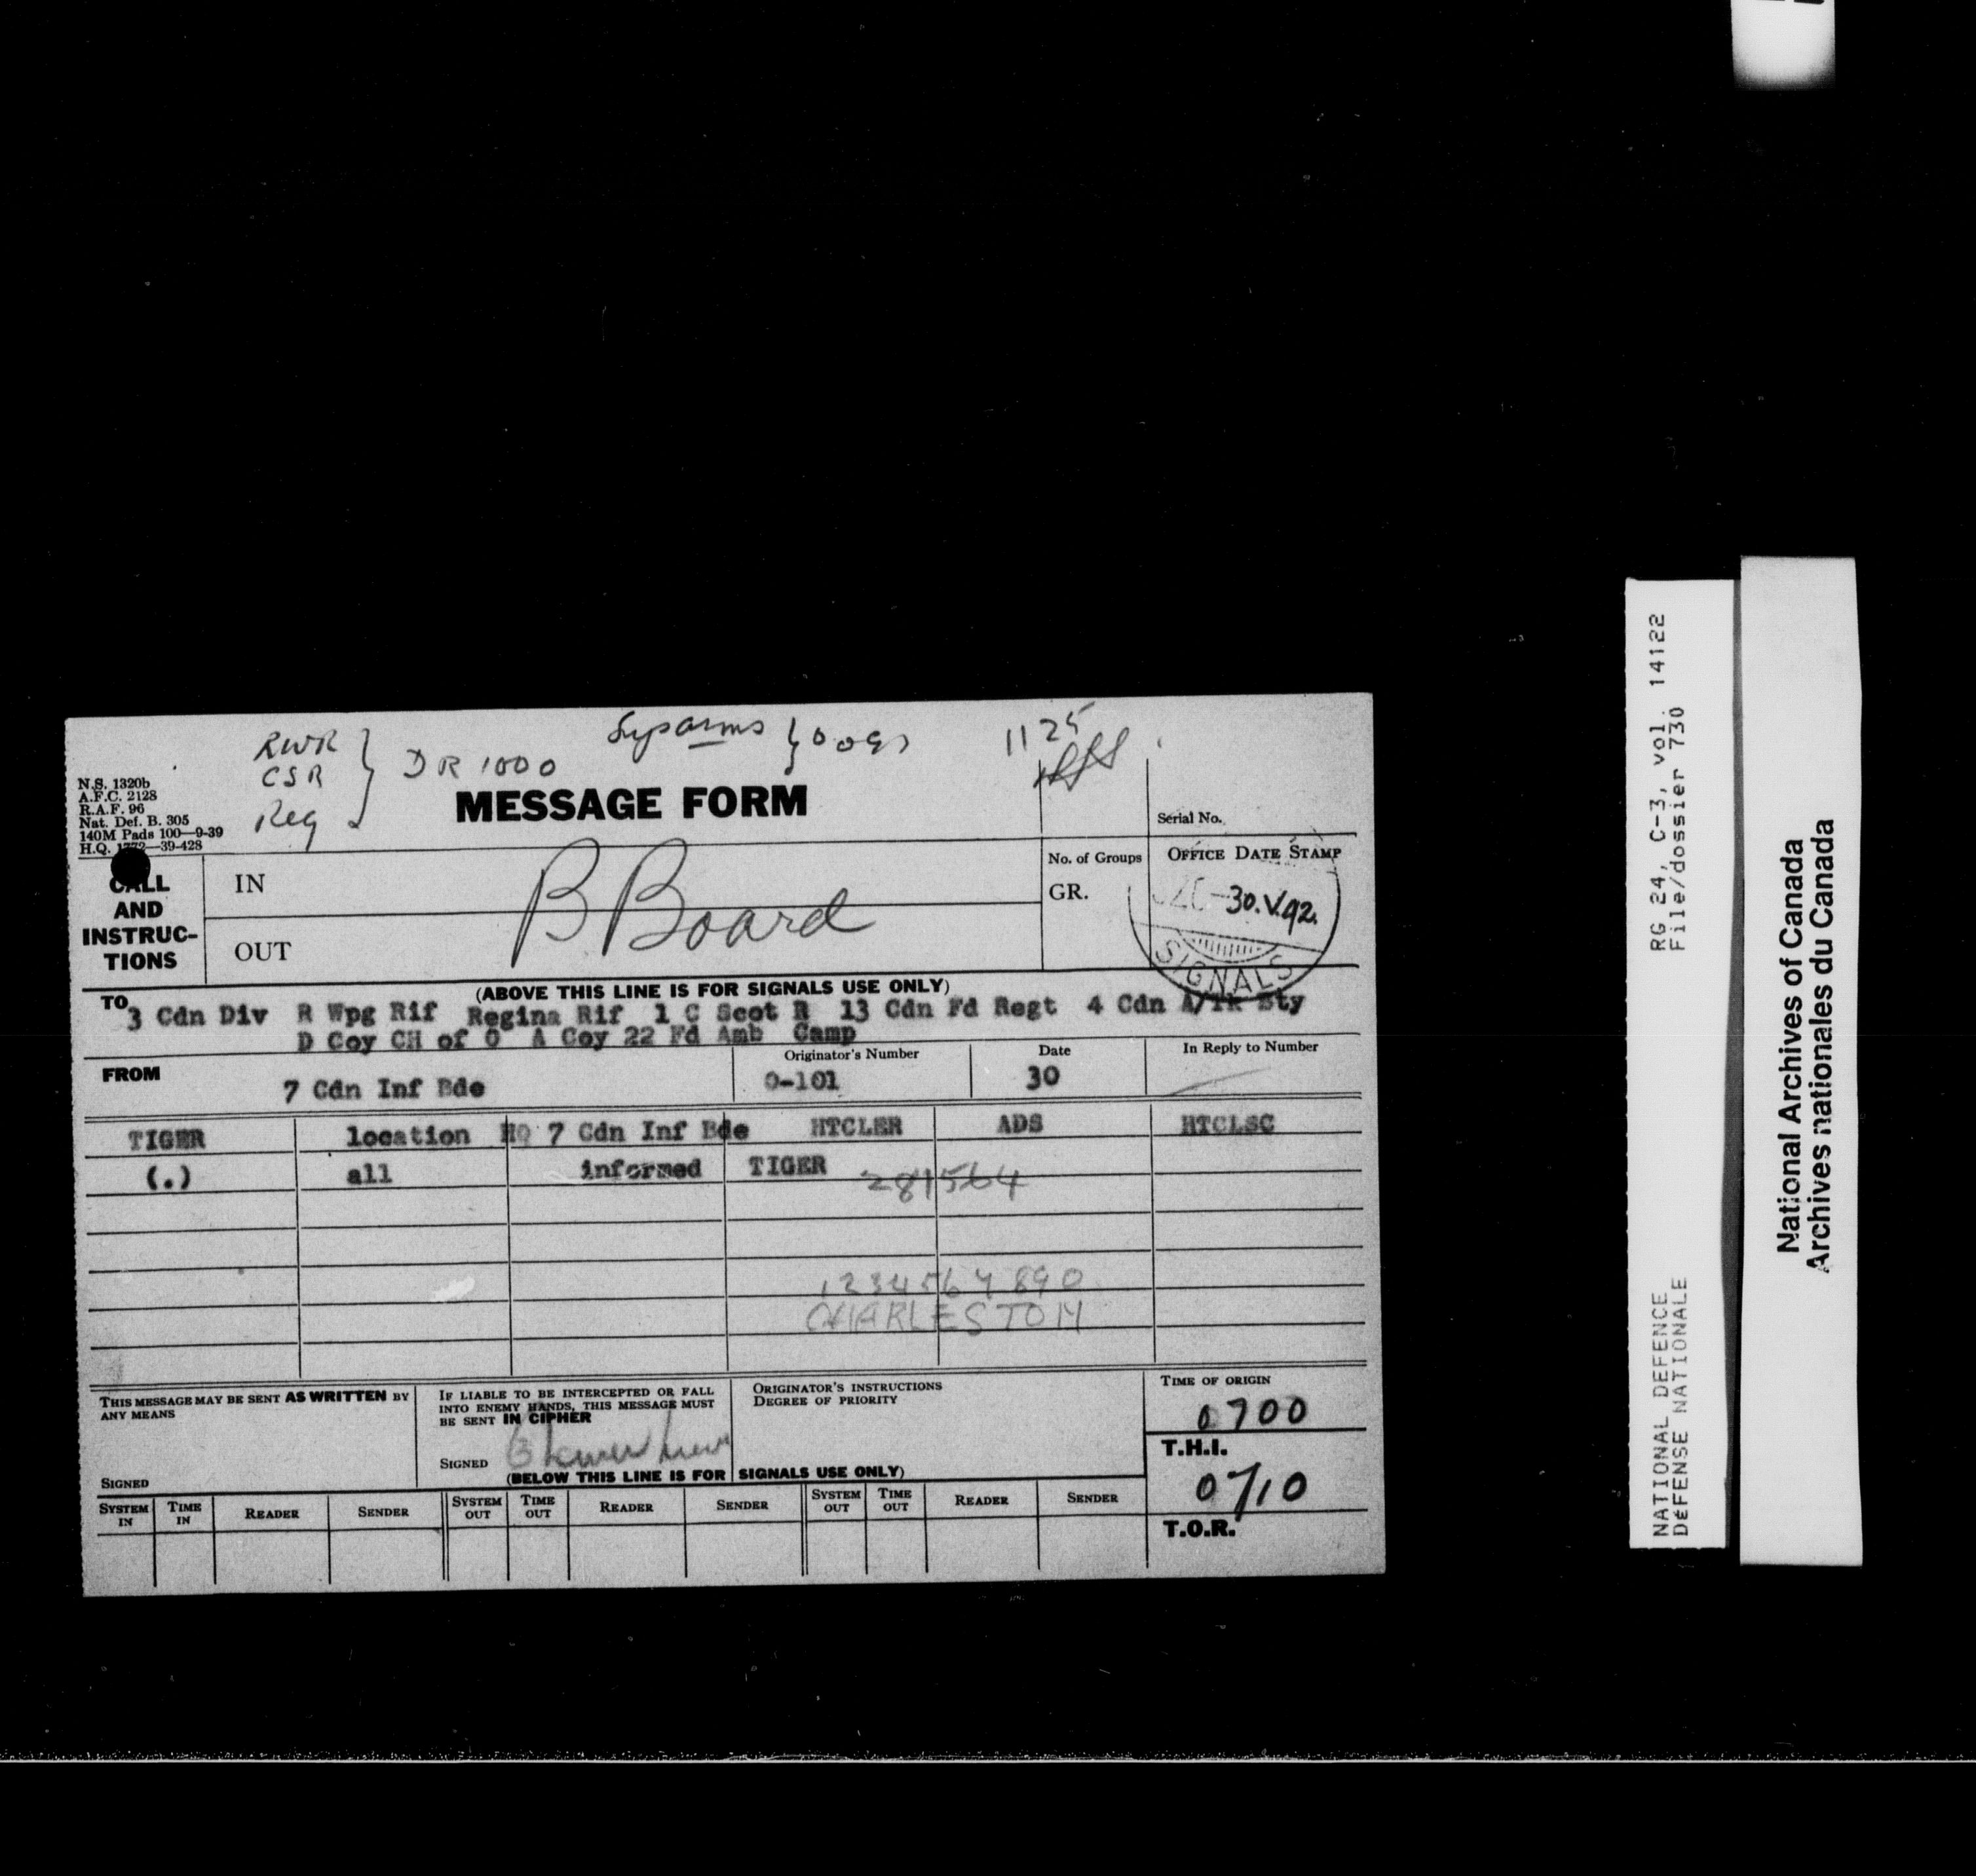 RWR
CSR
Reg
DR 1000
1125
N.S. 1320b
A.F.C. 2128
R.A.F. 96
Nat. Def. B. 305
140M Pads 100—9-39
H.Q. 1772—39-428
MESSAGE FORM
Serial No.
CALL
AND
INSTRUC-
TIONS
IN
OUT
B Board
No. of Groups
GR.
OFFICE DATE STAMP
30.V.42.
SIGNALS
(ABOVE THIS LINE IS FOR SIGNALS USE ONLY)
TO 3 Cdn Div R Wpg Rif Regina Rif 1 C Scot R 13 Cdn Fd Regt 4 Cdn A/Tk Bty
D Coy CH of O A Coy 22 Fd Amb Camp
FROM
7 Cdn Inf Bde
Originator's Number
O-101
Date
30
In Reply to Number
TIGER location HQ 7 Cdn Inf Bde HTCLER ADS HTCLSC
(.) all informed TIGER
281564
1234567890
CHARLESTON
THIS MESSAGE MAY BE SENT AS WRITTEN BY
ANY MEANS
SIGNED
IF LIABLE TO BE INTERCEPTED OR FALL
INTO ENEMY HANDS, THIS MESSAGE MUST
BE SENT IN CIPHER
SIGNED
ORIGINATOR'S INSTRUCTIONS
DEGREE OF PRIORITY
TIME OF ORIGIN
0700
T.H.I.
0710
T.O.R.
(BELOW THIS LINE IS FOR SIGNALS USE ONLY)
SYSTEM IN TIME IN READER SENDER SYSTEM OUT TIME OUT READER SENDER SYSTEM OUT TIME OUT READER SENDER
RG 24, C-3, vol. 14122
File/dossier 730
NATIONAL DEFENCE
DÉFENSE NATIONALE
National Archives of Canada
Archives nationales du Canada